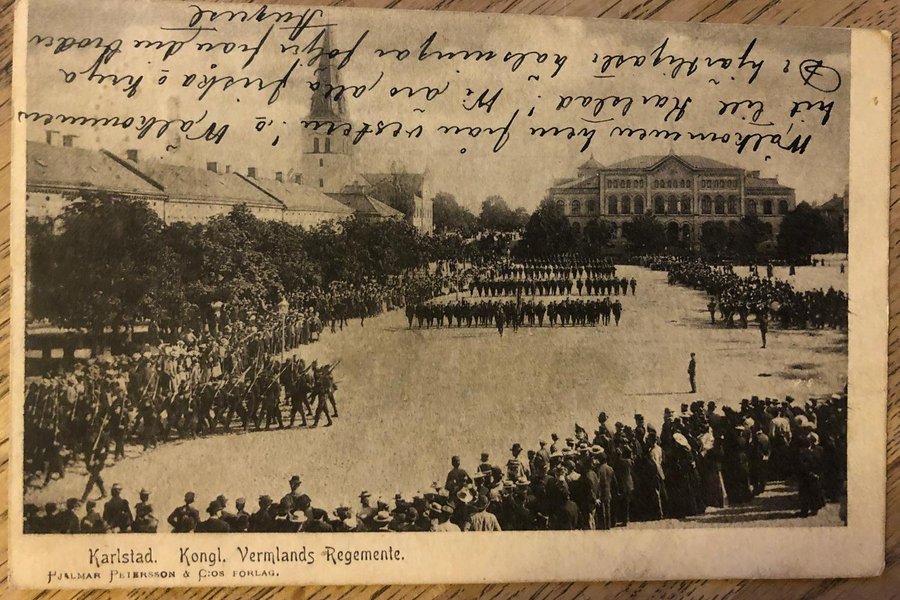 Wälkommen hem från vestern! o Wälkommen
hit till Karlstad! Wi äro alla friska o krya
De hjärtligaste hälsningar från din broder
August
Karlstad. Kongl. Vermlands Regemente.
Hjalmar Petersson & C:os förlag.